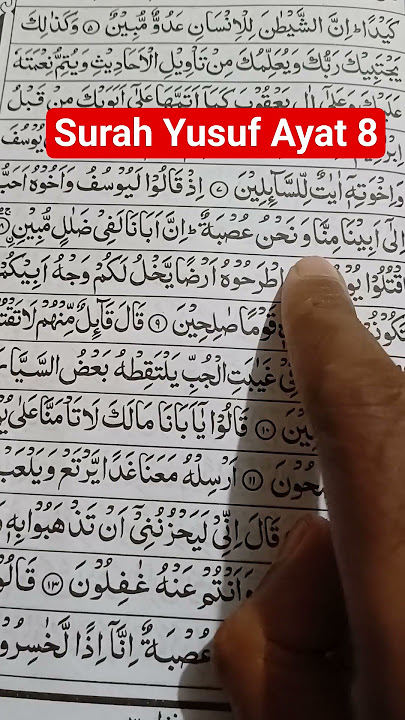 كَيْدًا ؕ اِنَّ الشَّيْطٰنَ لِلْاِنْسَانِ عَدُوٌّ مُّبِيْنٌ ۵ وَكَذٰلِكَ
يَجْتَبِيْكَ رَبُّكَ وَيُعَلِّمُكَ مِنْ تَاْوِيْلِ الْاَحَادِيْثِ وَيُتِمُّ نِعْمَتَهٗ
وَعَلٰٓى اٰلِ يَعْقُوْبَ كَمَآ اَتَمَّهَا عَلٰٓى اَبَوَيْكَ مِنْ قَبْلُ
Surah Yusuf Ayat 8
يُوْسُفَ
وَاِخْوَتِهٖٓ اٰيٰتٌ لِّلسَّآئِلِيْنَ ۷ اِذْ قَالُوْا لَيُوْسُفُ وَاَخُوْهُ اَحَبُّ
اِلٰٓى اَبِيْنَا مِنَّا وَنَحْنُ عُصْبَةٌ ؕ اِنَّ اَبَانَا لَفِيْ ضَلٰلٍ مُّبِيْنٍ ۸
اقْتُلُوْا اطْرَحُوْهُ اَرْضًا يَّخْلُ لَكُمْ وَجْهُ اَبِيْكُمْ
قَوْمًا صٰلِحِيْنَ ۹ قَالَ قَآئِلٌ مِّنْهُمْ لَا
غَيٰبَتِ الْجُبِّ يَلْتَقِطْهُ بَعْضُ
۱۰ قَالُوْا يٰٓاَبَانَا مَالَكَ لَا تَاْمَنَّا عَلٰى
۱۱ اَرْسِلْهُ مَعَنَا غَدًا يَّرْتَعْ وَيَلْعَبْ
قَالَ اِنِّيْ لَيَحْزُنُنِيْٓ اَنْ تَذْهَبُوْا بِهٖ
وَاَنْتُمْ عَنْهُ غٰفِلُوْنَ ۱۳ قَالُوْا
عُصْبَةٌ اِنَّآ اِذًا لَّخٰسِرُوْنَ